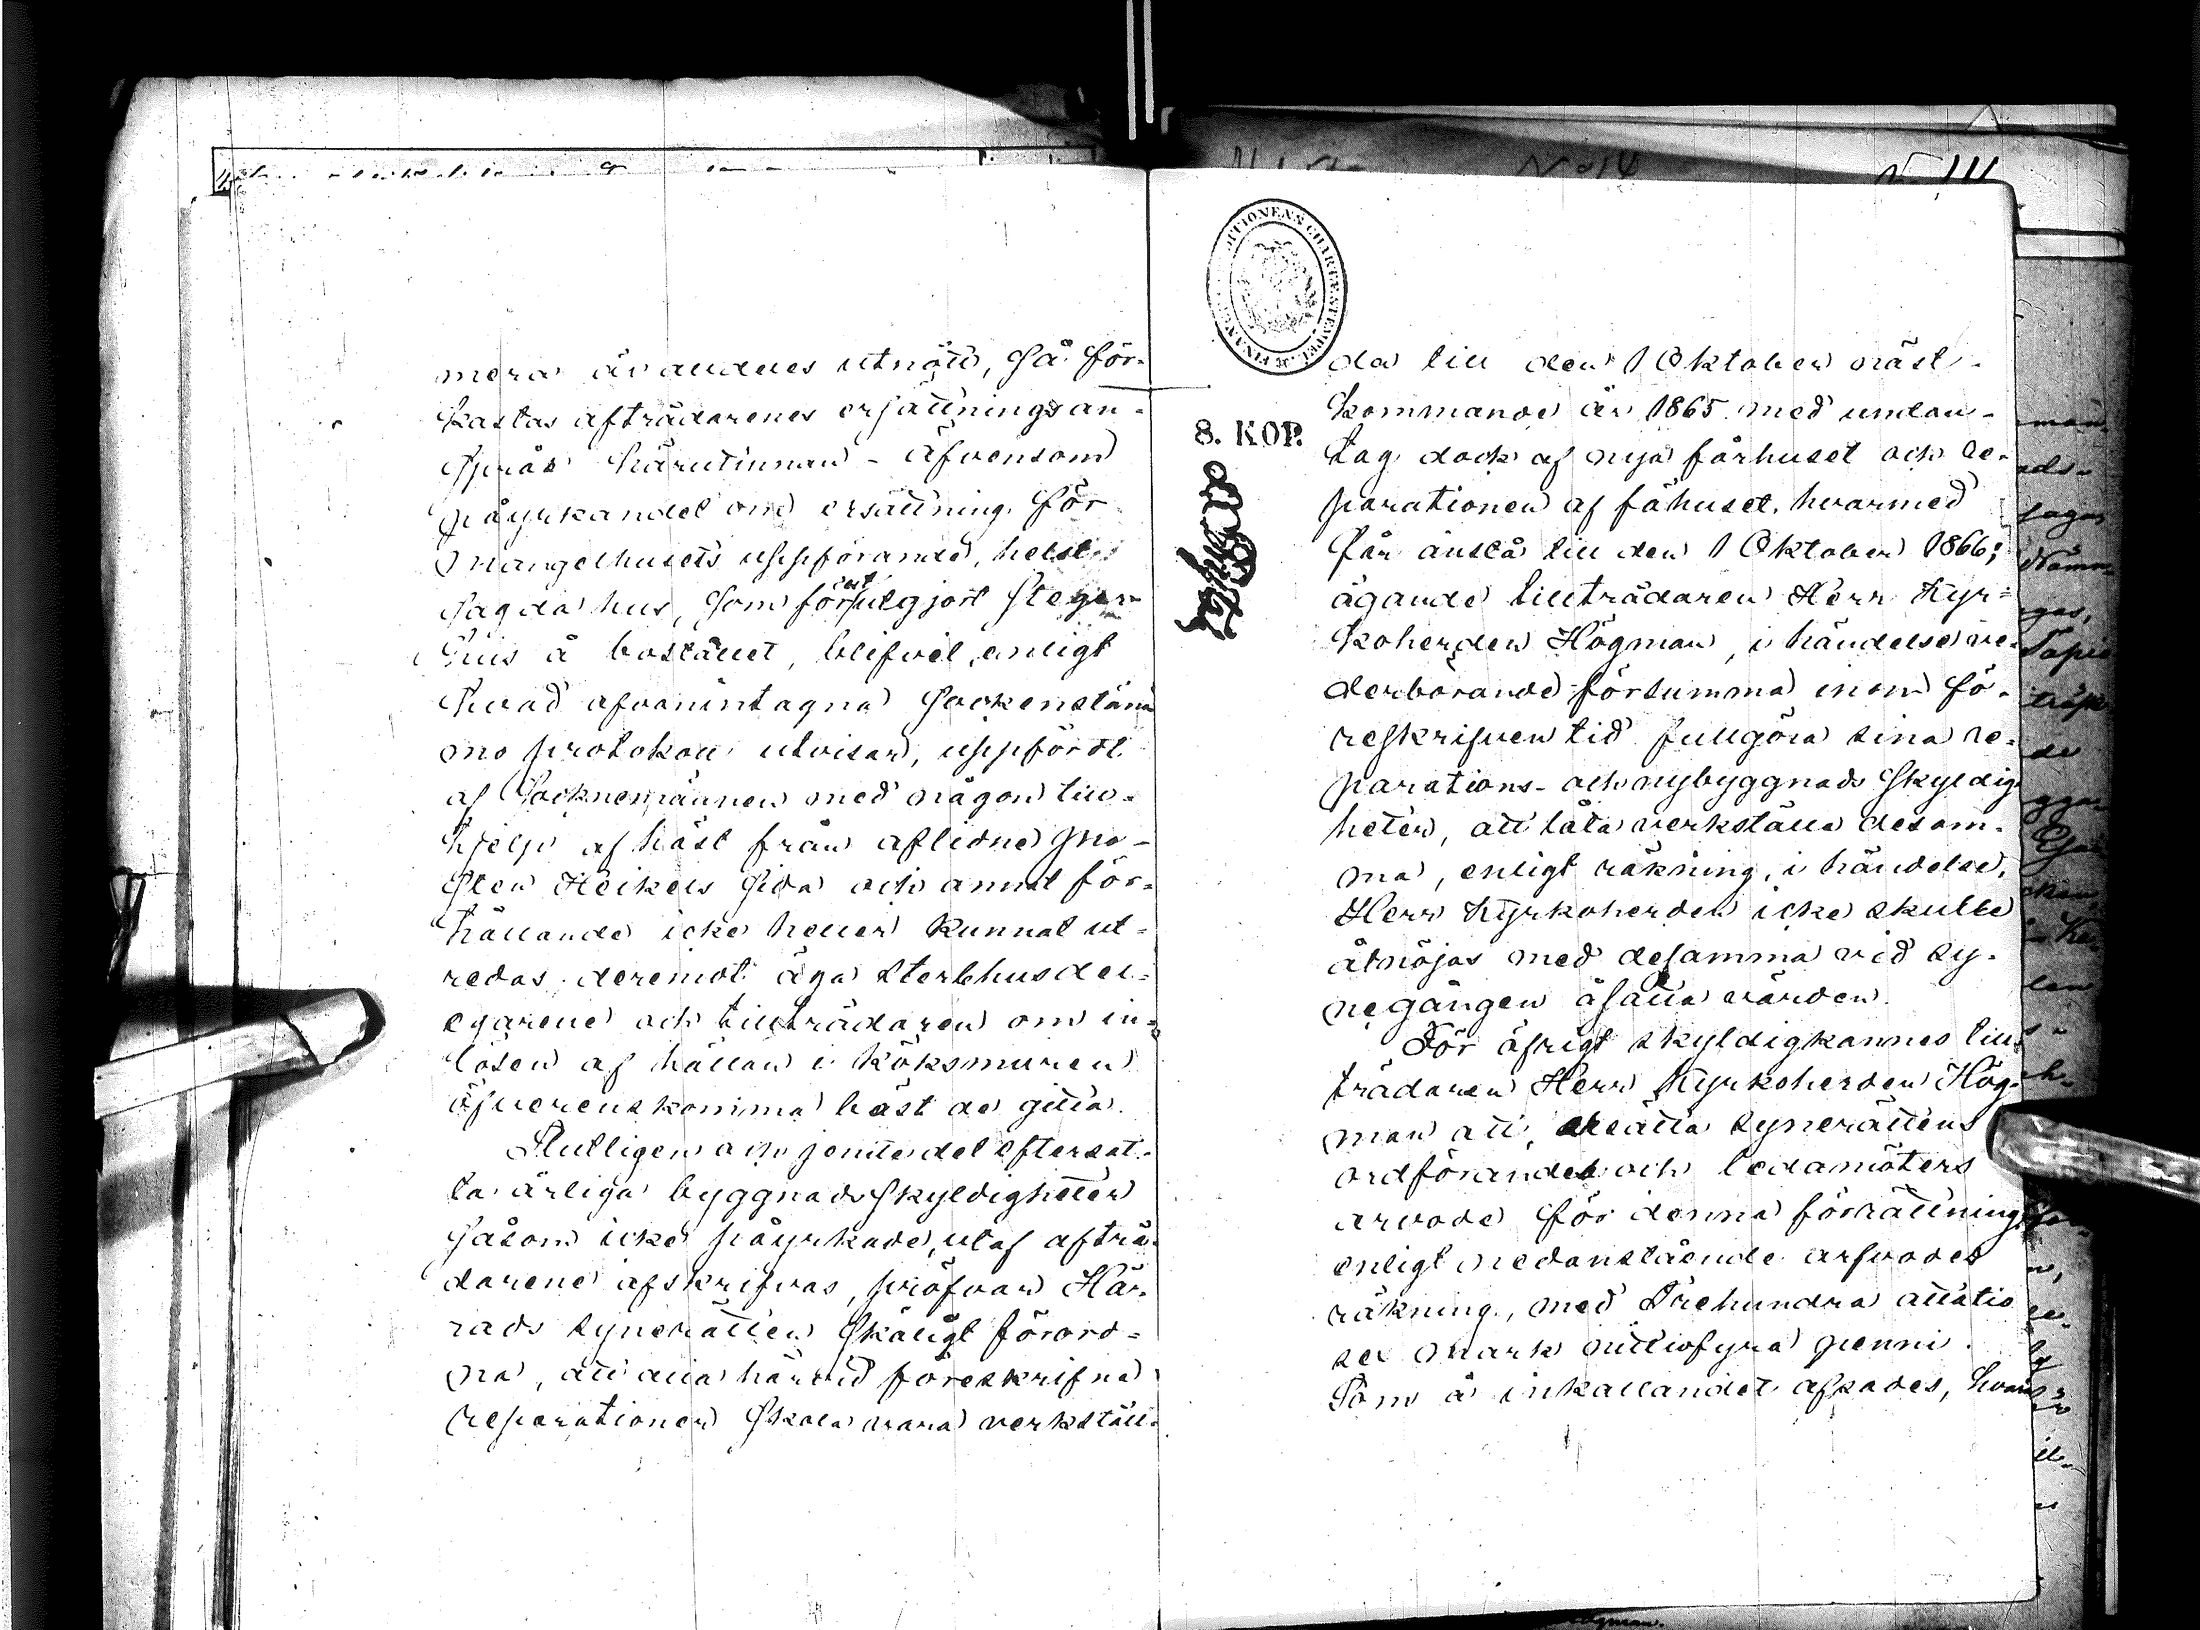 mera är alldeles utnött, så för-
kastas afträdarenes ersättningsan-
språk härutinnan - äfvensom
påyrkandet om ersättning för
Mangelhusets uppförande, helst
sagda hus, som förut utgjort steger-
hus å bostället, blifvit, enligt
hvad afvanintagna Sockenstäm
mo protokoll utvisar, uppfördt
af Socknemännen med någon till-
hjelp af häst från aflidne Pro-
sten Heikels sida och annat för-
hållande icke heller kunnat ut-
redas. deremot äga Sterbhusdel-
egarene och tillträdaren om in-
lösen af hällan i köksmuren
öfverenskomma bäst de gitta.
Slutligen och jemte det eftersat-
ta årliga byggnads skyldigheter
såsom icke påyrkade, utaf afträ-
darene afskrifvas, pröfvar Hä-
rads synerätten skäligt förord-
na, att alla härvid föreskrifna
reparationer skola vara verkstäl-
8. KOP.
da till den 1 Oktober näst-
kommande år 1865 med undan-
tag dock af nya fårhuset och re-
parationen af fähuset, hvarmed
får anstå till den 1 Oktober 1866;
ägande tillträdaren Herr Kyr-
koherden Högman, i händelse ve-
derbörande försumma inom fö-
reskrifven tid fullgöra sina re-
parations- och nybyggnads skyldig
heter, att låta verkställa desam-
ma, enligt räkning, i händelse,
Herr Kyrkoherden icke skulle
åtnöjas med desamma vid sy-
negången åsatta värden.
För öfrigt skyldigkännes till-
trädaren Herr Kyrkoherden Hög-
man att, ersätta Synerättens
ordförandes och ledamöters
arvode för denna förrättning
enligt nedanstående arfvodes
räkning, med Trehundra åttatio
sex mark nittiofyra penni.
Som å inkallandet afsades, hvars